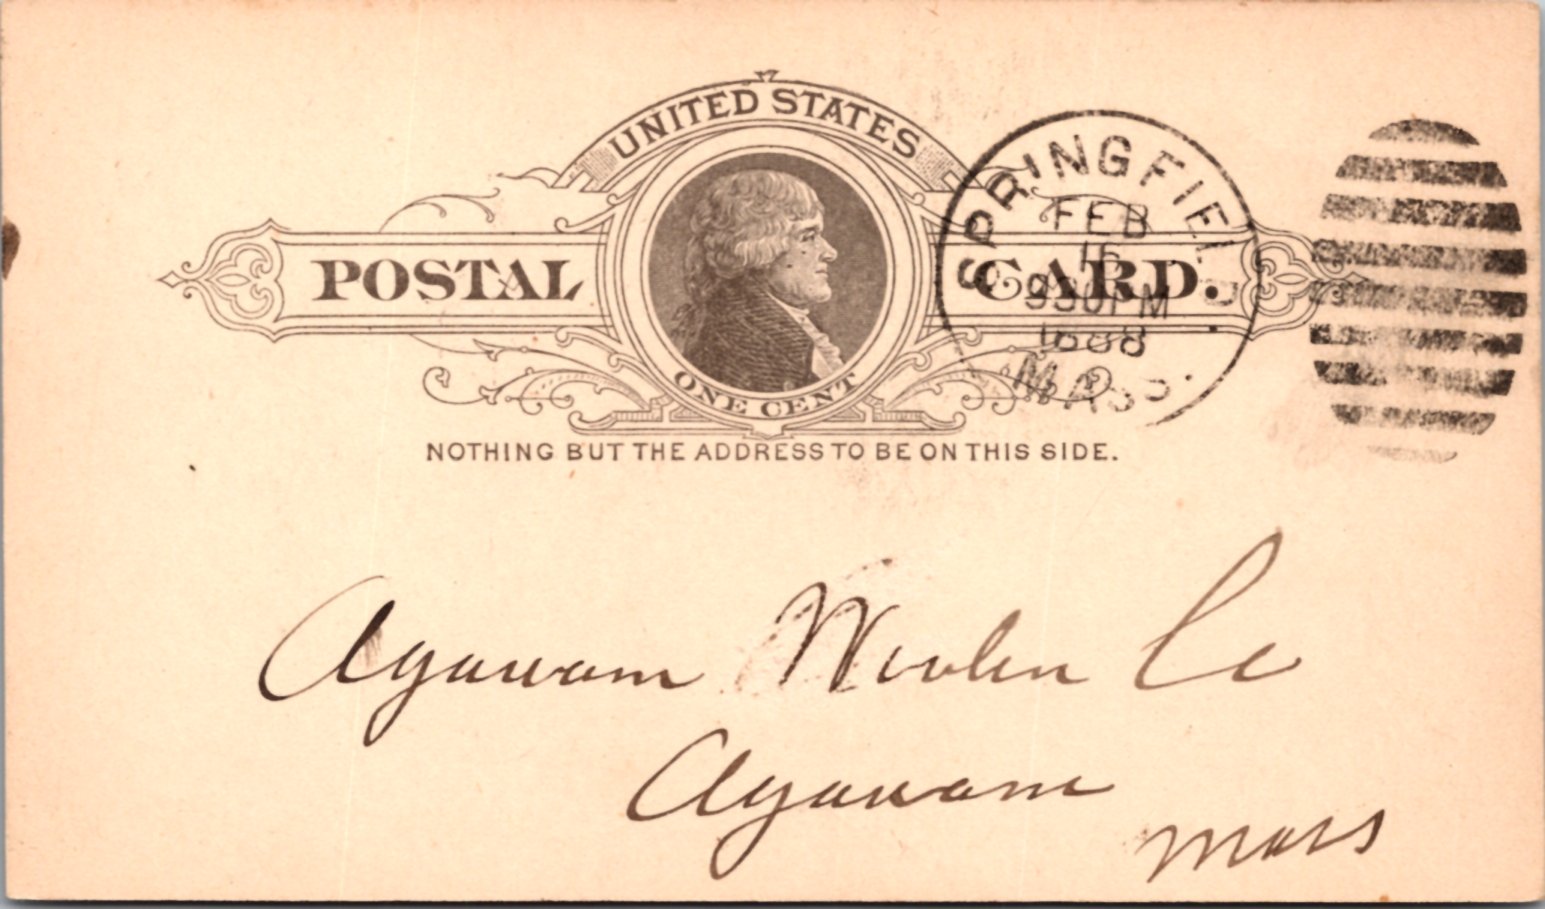 UNITED STATES
POSTAL CARD.
ONE CENT
NOTHING BUT THE ADDRESS TO BE ON THIS SIDE.
SPRINGFIELD
FEB
15
930PM
1888
MASS.
Agawam Woolen Co
Agawam
Mass